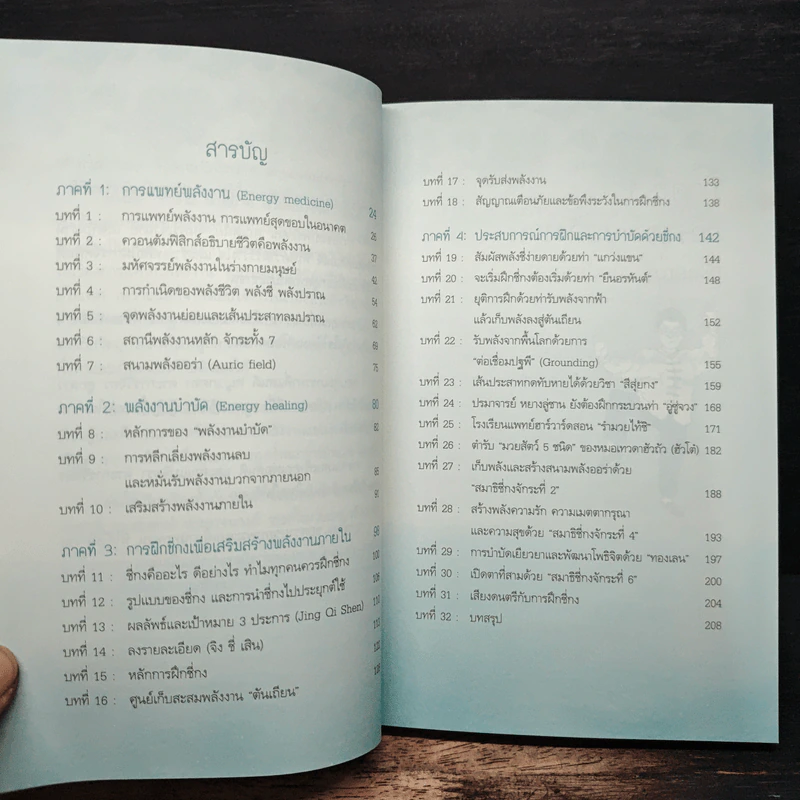 สารบัญ
ภาคที่ 1: การแพทย์พลังงาน (Energy medicine) 24
บทที่ 1 : การแพทย์พลังงาน การแพทย์สุดขอบในอนาคต 26
บทที่ 2 : ควอนตัมฟิสิกส์อธิบายชีวิตคือพลังงาน 37
บทที่ 3 : มหัศจรรย์พลังงานในร่างกายมนุษย์ 42
บทที่ 4 : การกำเนิดของพลังชีวิต พลังชี่ พลังปราณ 54
บทที่ 5 : จุดพลังงานย่อยและเส้นประสาทลมปราณ 62
บทที่ 6 : สถานีพลังงานหลัก จักระทั้ง 7 69
บทที่ 7 : สนามพลังออร่า (Auric field) 75
ภาคที่ 2: พลังงานบำบัด (Energy healing) 80
บทที่ 8 : หลักการของ "พลังงานบำบัด" 82
บทที่ 9 : การหลีกเลี่ยงพลังงานลบ
และหมั่นรับพลังงานบวกจากภายนอก 85
บทที่ 10 : เสริมสร้างพลังงานภายใน 91
ภาคที่ 3: การฝึกชี่กงเพื่อเสริมสร้างพลังงานภายใน 98
บทที่ 11 : ชี่กงคืออะไร ดีอย่างไร ทำไมทุกคนควรฝึกชี่กง 100
บทที่ 12 : รูปแบบของชี่กง และการนำชี่กงไปประยุกต์ใช้ 106
บทที่ 13 : ผลลัพธ์และเป้าหมาย 3 ประการ (Jing Qi Shen) 110
บทที่ 14 : ลงรายละเอียด (จิง ชี่ เสิน) 113
บทที่ 15 : หลักการฝึกชี่กง 122
บทที่ 16 : ศูนย์เก็บสะสมพลังงาน "ตันเถียน" 128
บทที่ 17 : จุดรับส่งพลังงาน 133
บทที่ 18 : สัญญาณเตือนภัยและข้อพึงระวังในการฝึกชี่กง 138
ภาคที่ 4: ประสบการณ์การฝึกและการบำบัดด้วยชี่กง 142
บทที่ 19 : สัมผัสพลังชี่ง่ายดายด้วยท่า "แกว่งแขน" 144
บทที่ 20 : จะเริ่มฝึกชี่กงต้องเริ่มด้วยท่า "ยืนอรหันต์" 148
บทที่ 21 : ยุติการฝึกด้วยท่ารับพลังจากฟ้า
แล้วเก็บพลังลงสู่ตันเถียน 152
บทที่ 22 : รับพลังจากพื้นโลกด้วยการ
"ต่อเชื่อมปฐพี" (Grounding) 155
บทที่ 23 : เส้นประสาทกดทับหายได้ด้วยวิชา "สีสุ่ยกง" 159
บทที่ 24 : ปรมาจารย์ หยางลู่ซาน ยังต้องฝึกกระบวนท่า "อู่ซู่จวง" 168
บทที่ 25 : โรงเรียนแพทย์ฮาร์วาร์ดสอน "รำมวยไท้ซิ" 171
บทที่ 26 : ตำรับ "มวยสัตว์ 5 ชนิด" ของหมอเทวดาฮัวถัว (ฮัวโต๋) 182
บทที่ 27 : เก็บพลังและสร้างสนามพลังออร่าด้วย
"สมาธิชี่กงจักระที่ 2" 188
บทที่ 28 : สร้างพลังความรัก ความเมตตากรุณา
และความสุขด้วย "สมาธิชี่กงจักระที่ 4" 193
บทที่ 29 : การบำบัดเยียวยาและพัฒนาโพธิจิตด้วย "ทองเลน" 197
บทที่ 30 : เปิดตาที่สามด้วย "สมาธิชี่กงจักระที่ 6" 200
บทที่ 31 : เสียงดนตรีกับการฝึกชี่กง 204
บทที่ 32 : บทสรุป 208